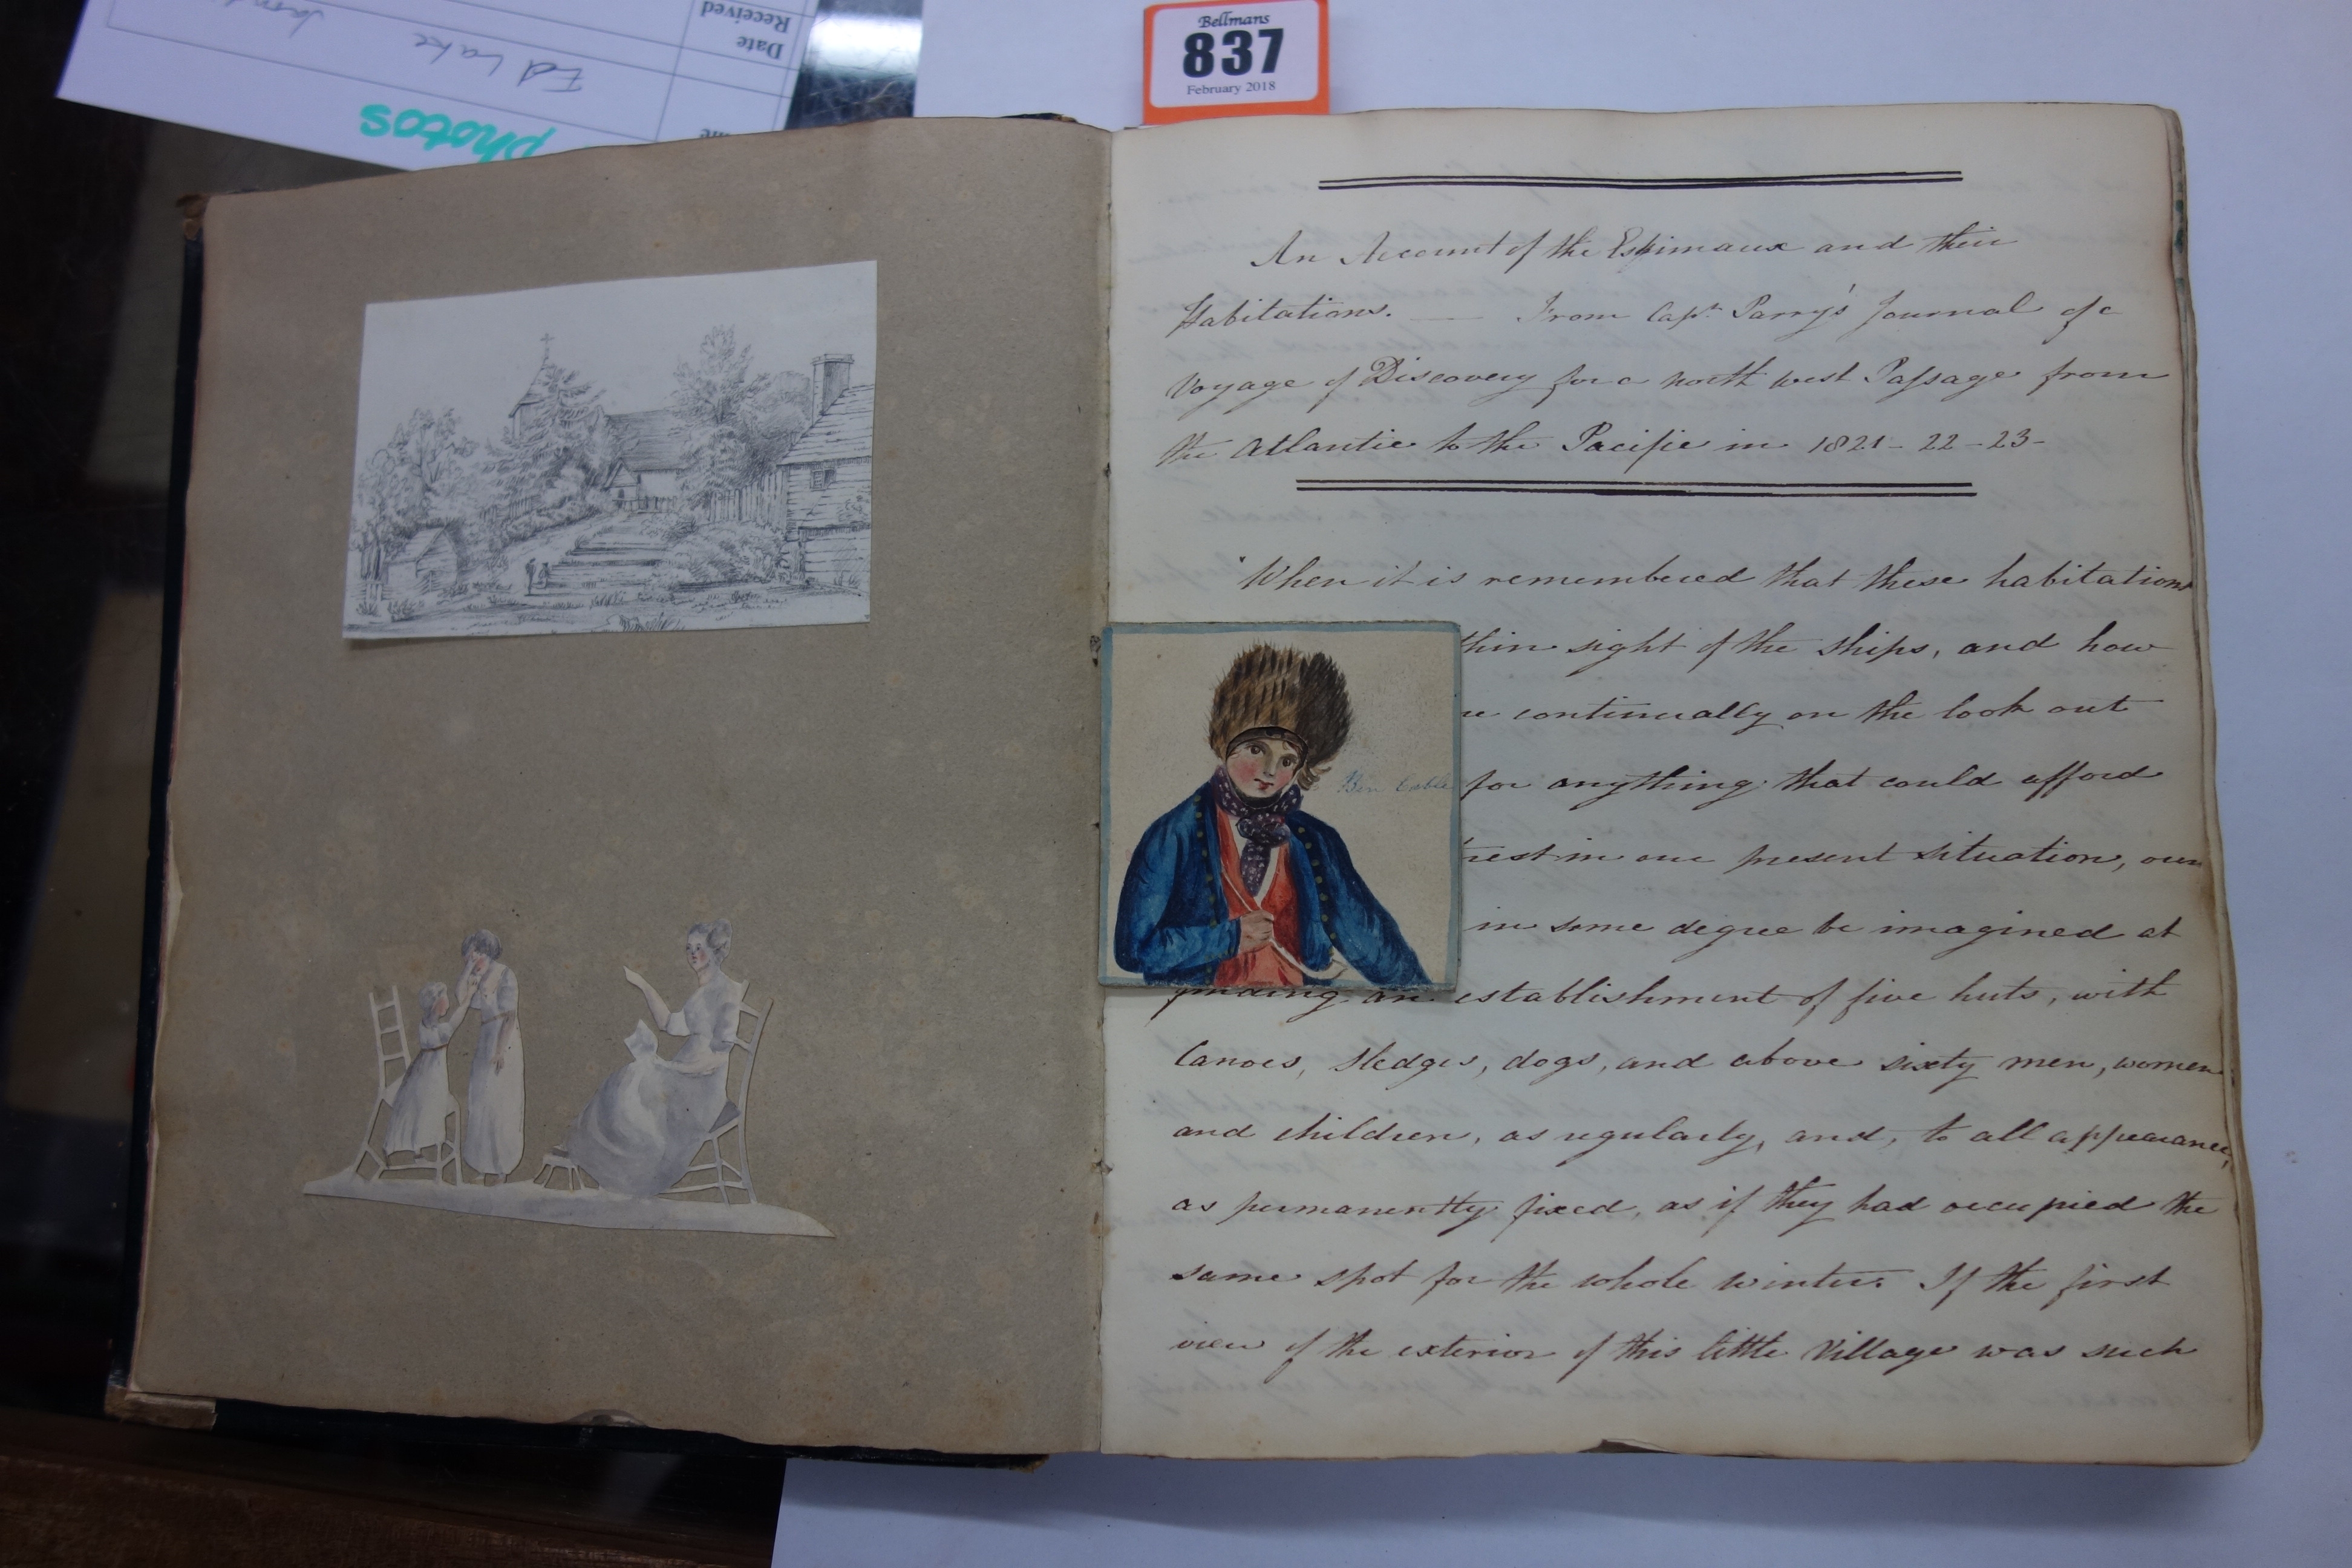 Bellmans
837
February 2018
photos
Ed Lake
Date
Received
An Account of the Eskimaux and their
Habitations. — From Capt Parry's Journal of a
Voyage of Discovery for a north west Passage from
the Atlantic to the Pacific in 1821 - 22 - 23 -
"When it is remembered that these habitations
thin sight of the ships, and how
continually on the look out
for anything that could afford
rest in our present situation, our
in some degree be imagined at
finding an establishment of five huts, with
Canoes, Sledges, dogs, and above sixty men, women
and children, as regularly, and, to all appearance,
as permanently fixed, as if they had occupied the
same spot for the whole winter. If the first
view of the exterior of this little Village was such
Ben